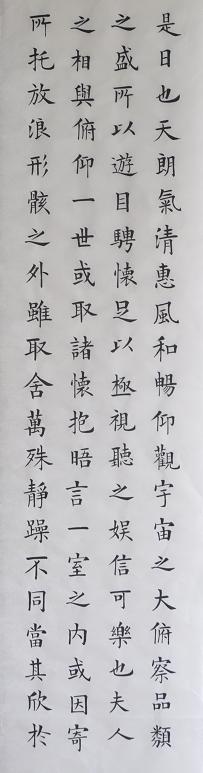 是日也天朗氣清惠風和暢仰觀宇宙之大俯察品類
之盛所以遊目騁懷足以極視聽之娱信可樂也夫人
之相與俯仰一世或取諸懷抱晤言一室之内或因寄
所托放浪形骸之外雖取舍萬殊靜躁不同當其欣於